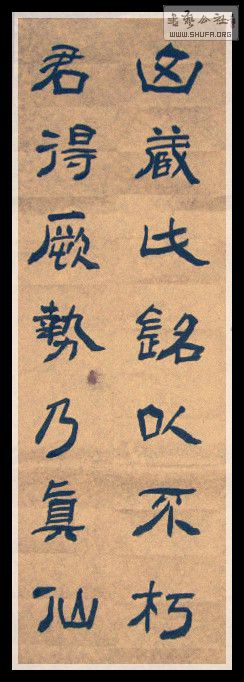 書藝公社
WWW.SHUFA.ORG
藏銘以不朽
君得厥勢乃眞仙